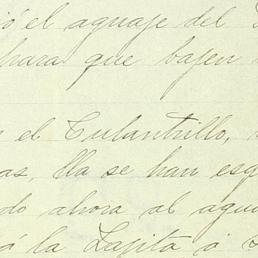 ó el aguaje del
para que bajen
el Culantrillo,
as, Ya se han esq
do ahora al agua
á la Lajita ó